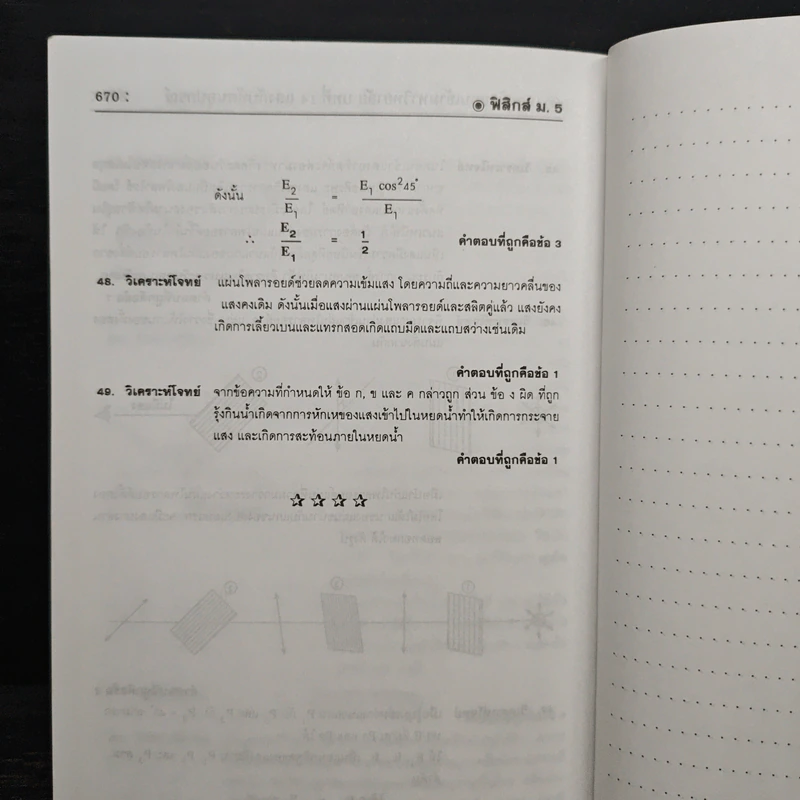 670 :
◉ ฟิสิกส์ ม. 5
ดังนั้น E2/E1 = E1 cos²45°/E1
∴ E2/E1 = 1/2 คำตอบที่ถูกคือข้อ 3
48. วิเคราะห์โจทย์ แผ่นโพลารอยด์ช่วยลดความเข้มแสง โดยความถี่และความยาวคลื่นของ
แสงคงเดิม ดังนั้นเมื่อแสงผ่านแผ่นโพลารอยด์และสลิตคู่แล้ว แสงยังคง
เกิดการเลี้ยวเบนและแทรกสอดเกิดแถบมืดและแถบสว่างเช่นเดิม
คำตอบที่ถูกคือข้อ 1
49. วิเคราะห์โจทย์ จากข้อความที่กำหนดให้ ข้อ ก, ข และ ค กล่าวถูก ส่วน ข้อ ง ผิด ที่ถูก
รุ้งกินน้ำเกิดจากการหักเหของแสงเข้าไปในหยดน้ำทำให้เกิดการกระจาย
แสง และเกิดการสะท้อนภายในหยดน้ำ
คำตอบที่ถูกคือข้อ 1